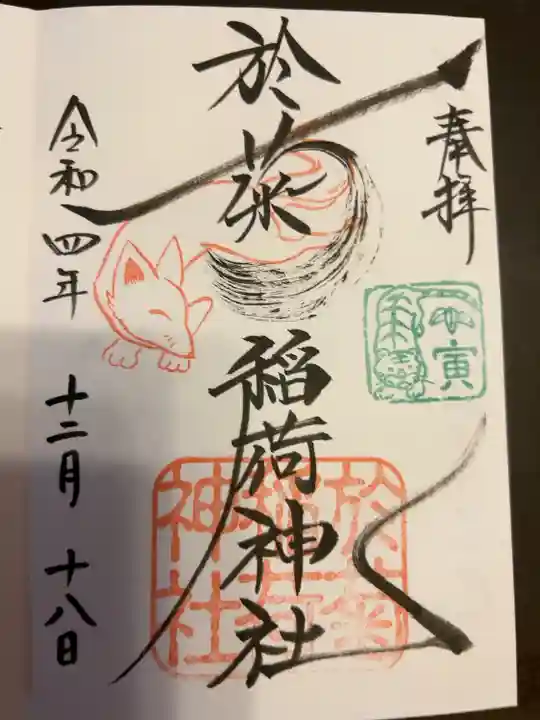 奉拝
於菊稲荷神社
令和四年 十二月 十八日
於菊
稲荷
神社